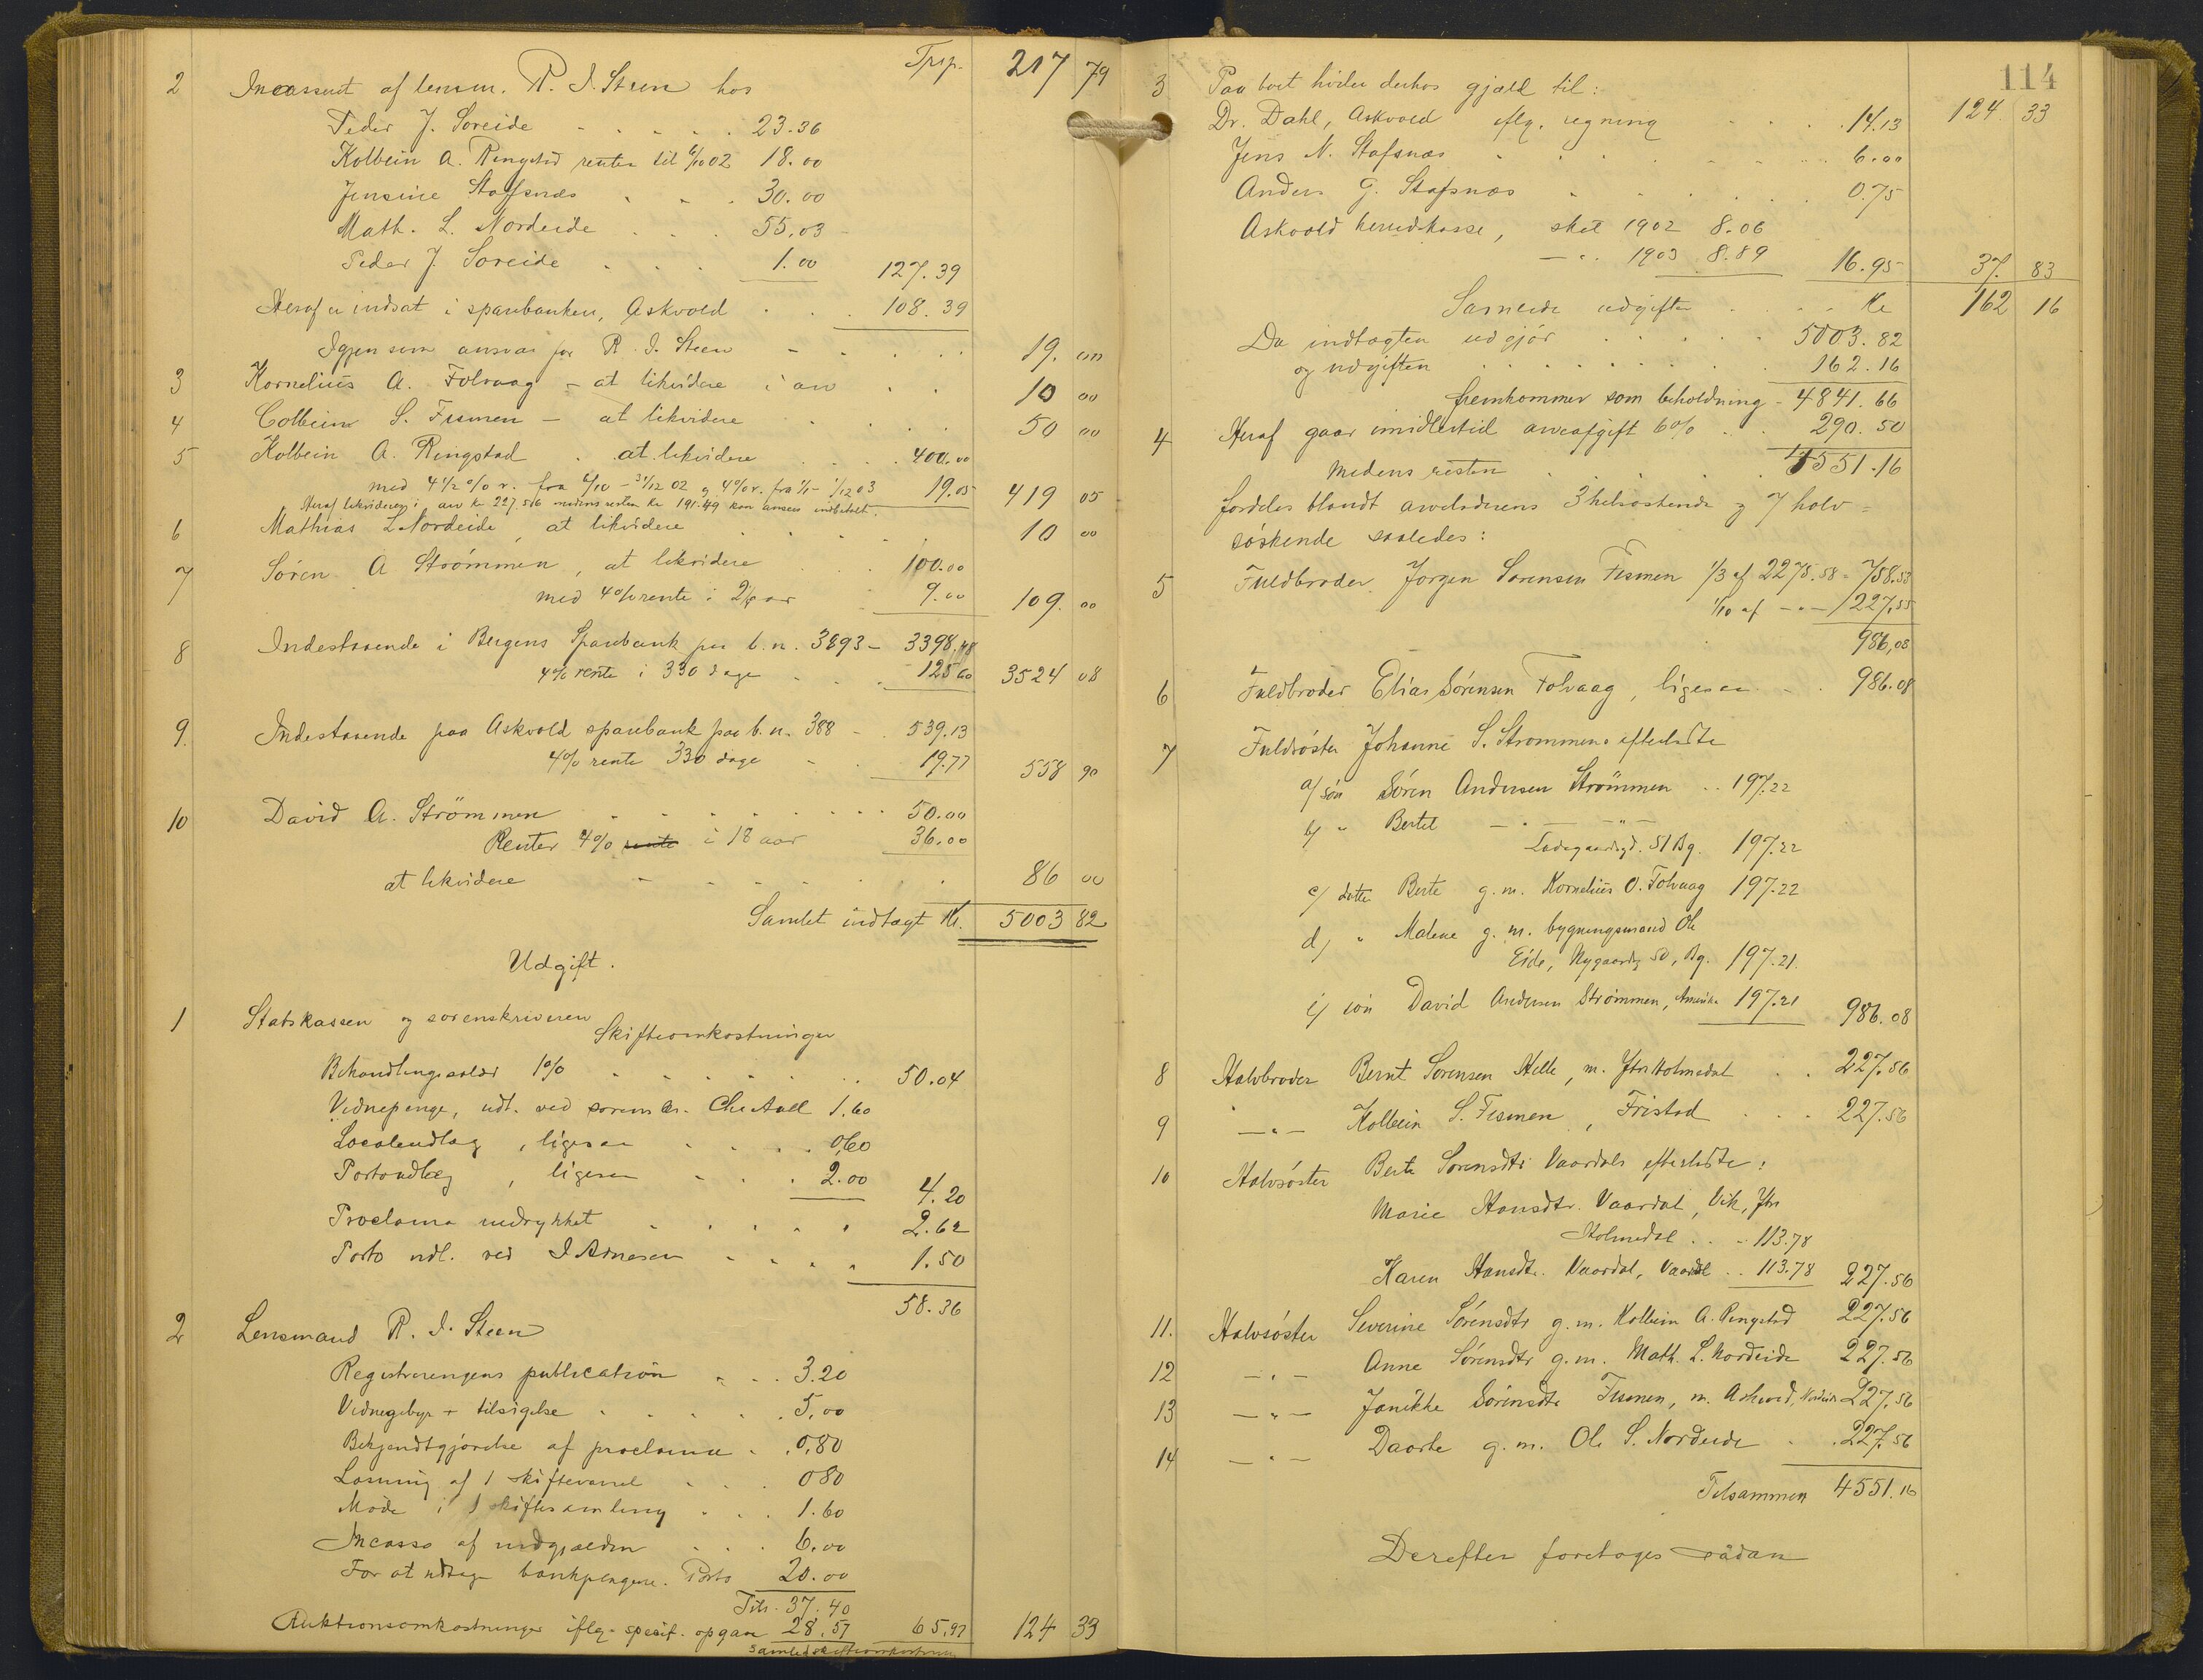 Trsp. 217 79
2 Incasseret af lensm. R. I. Steen hos
Peder J. Soreide 23.36
Kolbein A. Ringstad renter til 6/10 02 18.00
Jensine Stafsnæs 30.00
Math. L. Nordeide 55.03
Peder J. Soreide 1.00 127.39
Heraf er indsat i sparebanken, Askvold 108.39
Igjen som ansvar for R. I. Steen 19.00
3 Kornelius A. Folvaag - at likvidere i arv 10 00
4 Colbein S. Fismen - at likvidere 50 00
5 Kolbein A. Ringstad at likvidere 400.00
med 4 1/2 % r. fra 6/10 - 31/12 02 og 4% r. fra 1/1 - 1/12 03 19.05 419 05
Heraf likvideres i arv kr 227.56 medens resten kr 191.49 kan ansees indbetalt.
6 Mathias L Nordeide, at likvidere 10 00
7 Sören A Strömmen, at likvidere 100.00
med 4% rente i 2 1/4 aar 9.00 109.00
8 Indestaaende i Bergens Sparebank paa b. n. 3693 - 3398.48
4% rente i 330 dage 125.60 3524 08
9. Indestaaende paa Askvold sparebank paa b. n. 388 - 539.13
4% rente 330 dage 19.77 558 90
10 David A. Strömmen 50.00
Renter 4% rente i 18 aar 36.00
at likvidere 86 00
Samlet indtægt Kr. 5003 82
Udgift.
1 Statskassen og sorenskriveren
Skifteomkostninger
Behandlingssalær 1% 50.04
Vidnepenge, udl. ved sorenskr. 1.60
Localeudlæg, ligesaa 0,60
Portoudlæg, ligesaa 2.00 4.20
Proclama indrykket 2.62
Porto udl. ved 1.50
58.36
2 Lensmand R. I. Steen
Registreringens publication 3.20
Vidnegebyr + tilsigelse 5,00
Bekjendtgjörelse af proclama 0,80
Læsning af 1 skiftevarsel 0 80
Möde i 1 skiftesamling 1.60
Incasso af indgjælden 6.00
For at udtage bankpengene. Porto 20.00
Tils. 37.40
Auktionsomkostninger iflg. specif. opgave 28.57 65,97 124 33
Samlede skifteomkostninger
114
124 33
3 Paa boet hviler derhos gjæld til:
Dr. Dahl, Askvold iflg. regning 14.13
Jens N. Stafsnæs 6.00
Anders G. Stafsnæs 0.75
Askvold herredskasse, skat 1902 8.06
- " - 1903 8.89 16.95 37. 83
Samlede udgifter Kr 162 16
Da indtægten udgjör 5003.82
og udgiften 162.16
fremkommer som beholdning - 4841.66
4 Heraf gaar imidlertid arveafgift 6% 290.50
medens resten 4551.16
fordeles blandt arveladerens 3 helsöskende og 7 halv=
söskende saaledes:
5 Fuldbroder Jörgen Sörensen Fismen 1/3 af 2275.58 = 758.53
1/10 af - " - 227,55
986,08
6 Fuldbroder Elias Sörensen Folvaag, ligesaa 986.08
7 Fuldsöster Johanne S. Strömmens efterladte
a/ sön Sören Andersen Strömmen 197.22
b/ " Bertel - " - - " -
Ladegaardsgd. 51 Bg. 197.22
c/ datter Berte g. m. Kornelius O. Folvaag 197.22
d/ " Malene g. m. bygningsmand Ole
Eide, Nygaardsg 50, Bg. 197.21.
e/ sön David Andersen Strömmen, Amerika 197.21 986.08
8 Halvbroder Bernt Sörensen Helle, m. Ytre Holmedal 227.56
9 - " - Kolbein S. Fismen, Fristad 227.56
10 Halvsöster Berte Sörensdtr Vaardals efterladte:
Marie Hansdtr. Vaardal, Vik, Ytre
Holmedal 113.78
Karen Hansdtr. Vaardal, Vaardal 113.78 227.56
11. Halvsöster Severine Sörensdtr g. m. Kolbein A. Ringstad 227.56
12 - " - Anne Sörensdtr g. m. Math. L. Nordeide 227.56
13 - " - Janikke Sörensdtr Fismen, m. Askvold, Nordeide 227,56
14 - " - Daarte g. m. Ole S. Nordeide 227.56
Tilsammen 4551.16
Derefter foretages sådan